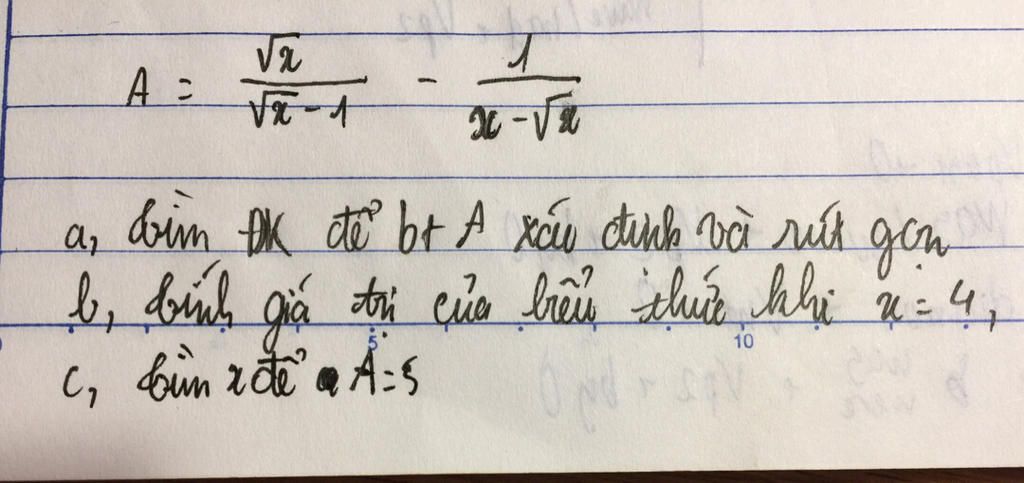 A = √x / (√x - 1) - 1 / (x - √x)
a, tìm ĐK để bt A xác định và rút gọn
b, tính giá trị của biểu thức khi x = 4,
c, tìm x để A = 5
5 10